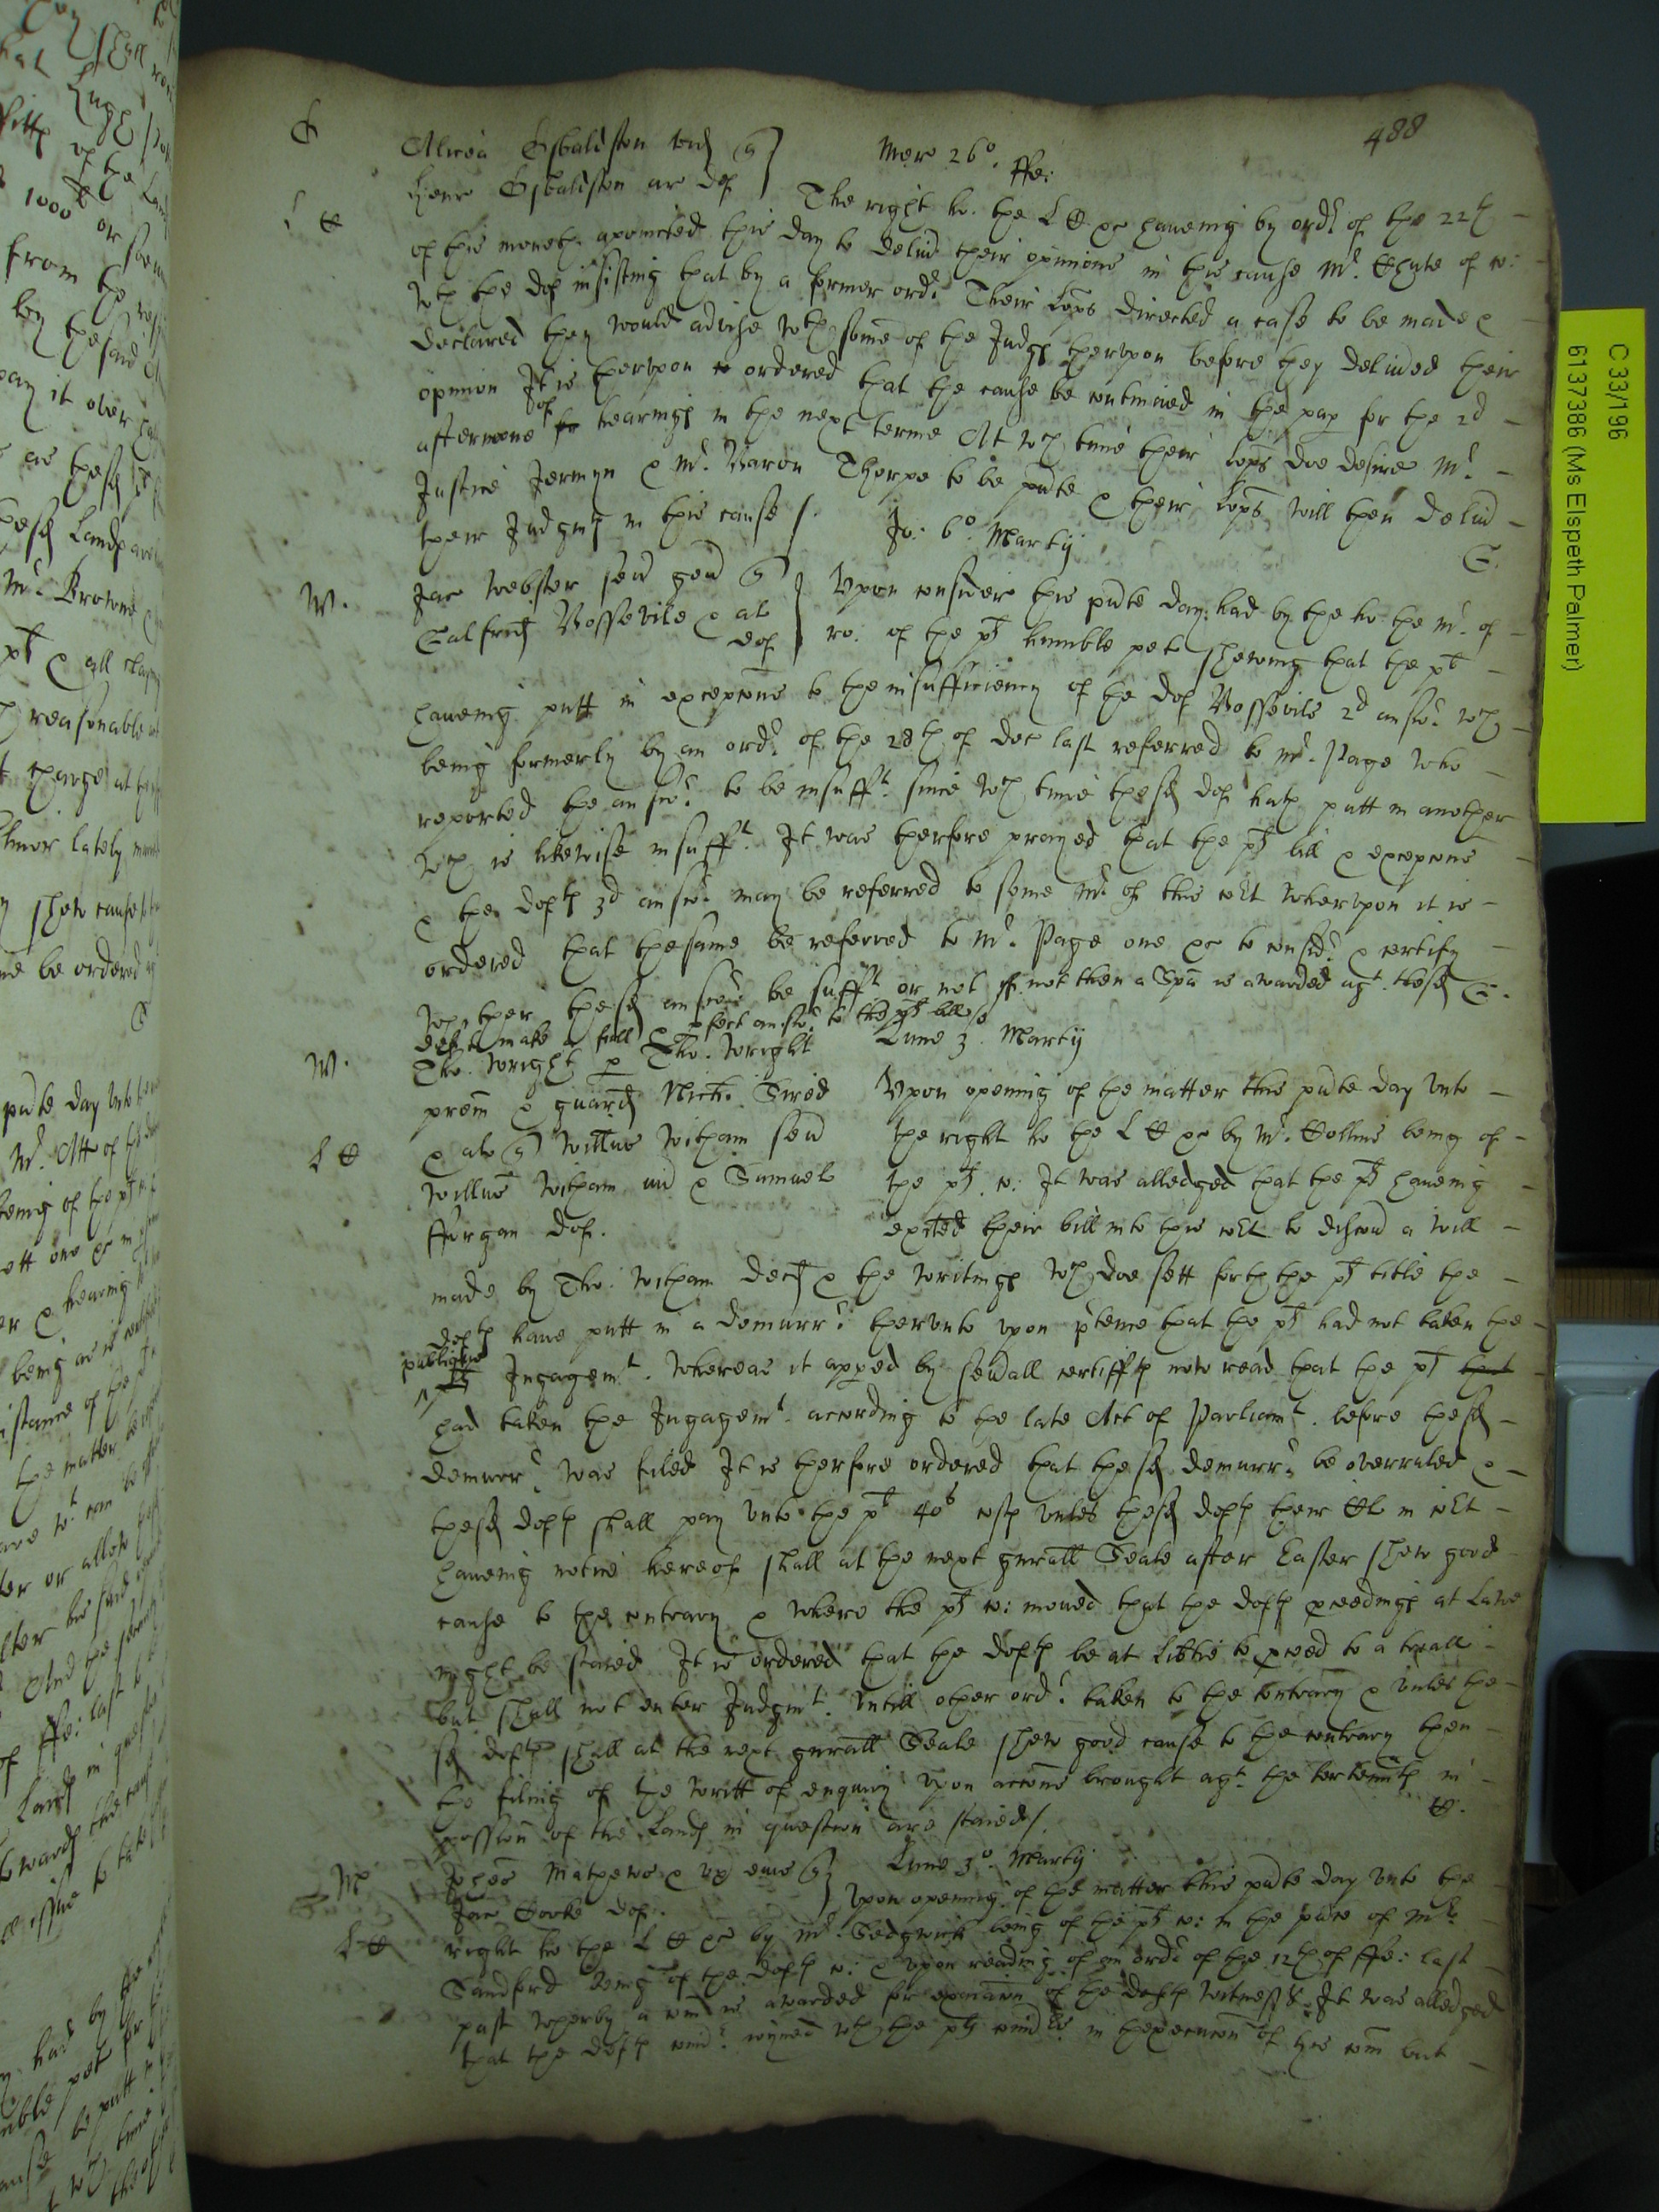 488
Alicia Osbaldston vid q
Mer 26o. ffe:
Henr Osbaldston ar def
The right ho. the L C &c haueing by ordr of the 22th
L C
of this moneth apointed this day to deliu their opinions in this cause Mr. Chute of co:
wth the def insisting that by a former ordr Their Lops directed a case to be made &
declared they would advise wth some of the Judgs therupon before they deliued their
opinion It is therupon ordered that the cause be continued in the pap for the 2d
afternoone of hearings in the next terme At wch time their Lops doe desire Mr.
Justice Jermyn & Mr. Baron Thorpe to be pnte & their Lops will then deliu
their Judgmt in this cause /.
Jo: 6o. Martij
W.
Jac Webster sen gen q
Galfrid Bossevile & al def
Vpon consider this pnte day had by the ho the Mr. of
ro. of the plt humble pet shewing that the plt
haueing putt in excepcons to the insufficiency of the def Bossevile 2d answr wch
being formerly by an ordr of the 28th of dec last referred to Mr. Page who
reported the answr to be insufft since wch time the sd def hath putt in another
wch is likewise insufft. It was therfore prayed that the plt bill & excepcons
& the defts 3d answr may be referred to some Mr of this Cot Whervpon it is
ordered that the same be referred to Mr. Page one &c to considr & certify
whether the sd answr be sufft or not if not then a Spa is awarded agt the sd
def to make a full & pfect answr to the plts bill
Lune 3o. Martij
W.
Tho. Wright p Tho. Wright
proem & guard Nich. Tired
& als q Willus Witham sen
Willus Witham iun & Samuel
ffurgan def.
L C
Vpon opening of the matter this pnte day vnto
the right ho the L C &c by Mr. Collins being of
the plt co: It was alledged that the plt haueing
exited their bill into this Cot to discou a will
made by Tho. Witham decd & the writings wch doe sett forth the plt title the
defts haue putt in a demurrr thervnto vpon ptence that the plt had not taken the
Ingagemt. Whereas it appeed by seuall certiffts now read that the plt
had taken the Ingagemt according to the late Act of Parliamt. before the sd
demurrr was filed It is therfore ordered that the sd demurrr be overruled &
the sd defts shall pay vnto the plt 40s costs vnles the sd defts their Cl in Cot
haueing notice hereof shall at the next gnrall Seale after Easter shew good
cause to the contrary & where the plt co: moued that the defts pceedings at Lawe
might be staied It is ordered that the defts be at libtie to pceed to a triall
but shall not enter Judgmt. vntill other ordr taken to the contrary & vnles the
sd defts shall at the next gnrall Seale shew good cause to the contrary then
the filing of the writt of enquiry vpon accons brought agt. the tertennts in
possion of the Lands in question are staied /.
Johes Mathewes & ux eius q
Lune 3o. Martij
Jac Cooke def.
Vpon opening of the matter this pnte day vnto the
L C
right ho the L C &c by Mr. Sedgwick being of the plt co: in the pnce of Mr.
Sandford being of the defts co: & vpon reading of an ordr of the 12th of ffe: last
past wherby a com is awarded for exaiacon of the defts witnesses It was alledged
that the defts comr. ioyned wth the plt comrs in the execucon of this com but
C 33/196
6137386 (Ms Elspeth Palmer)